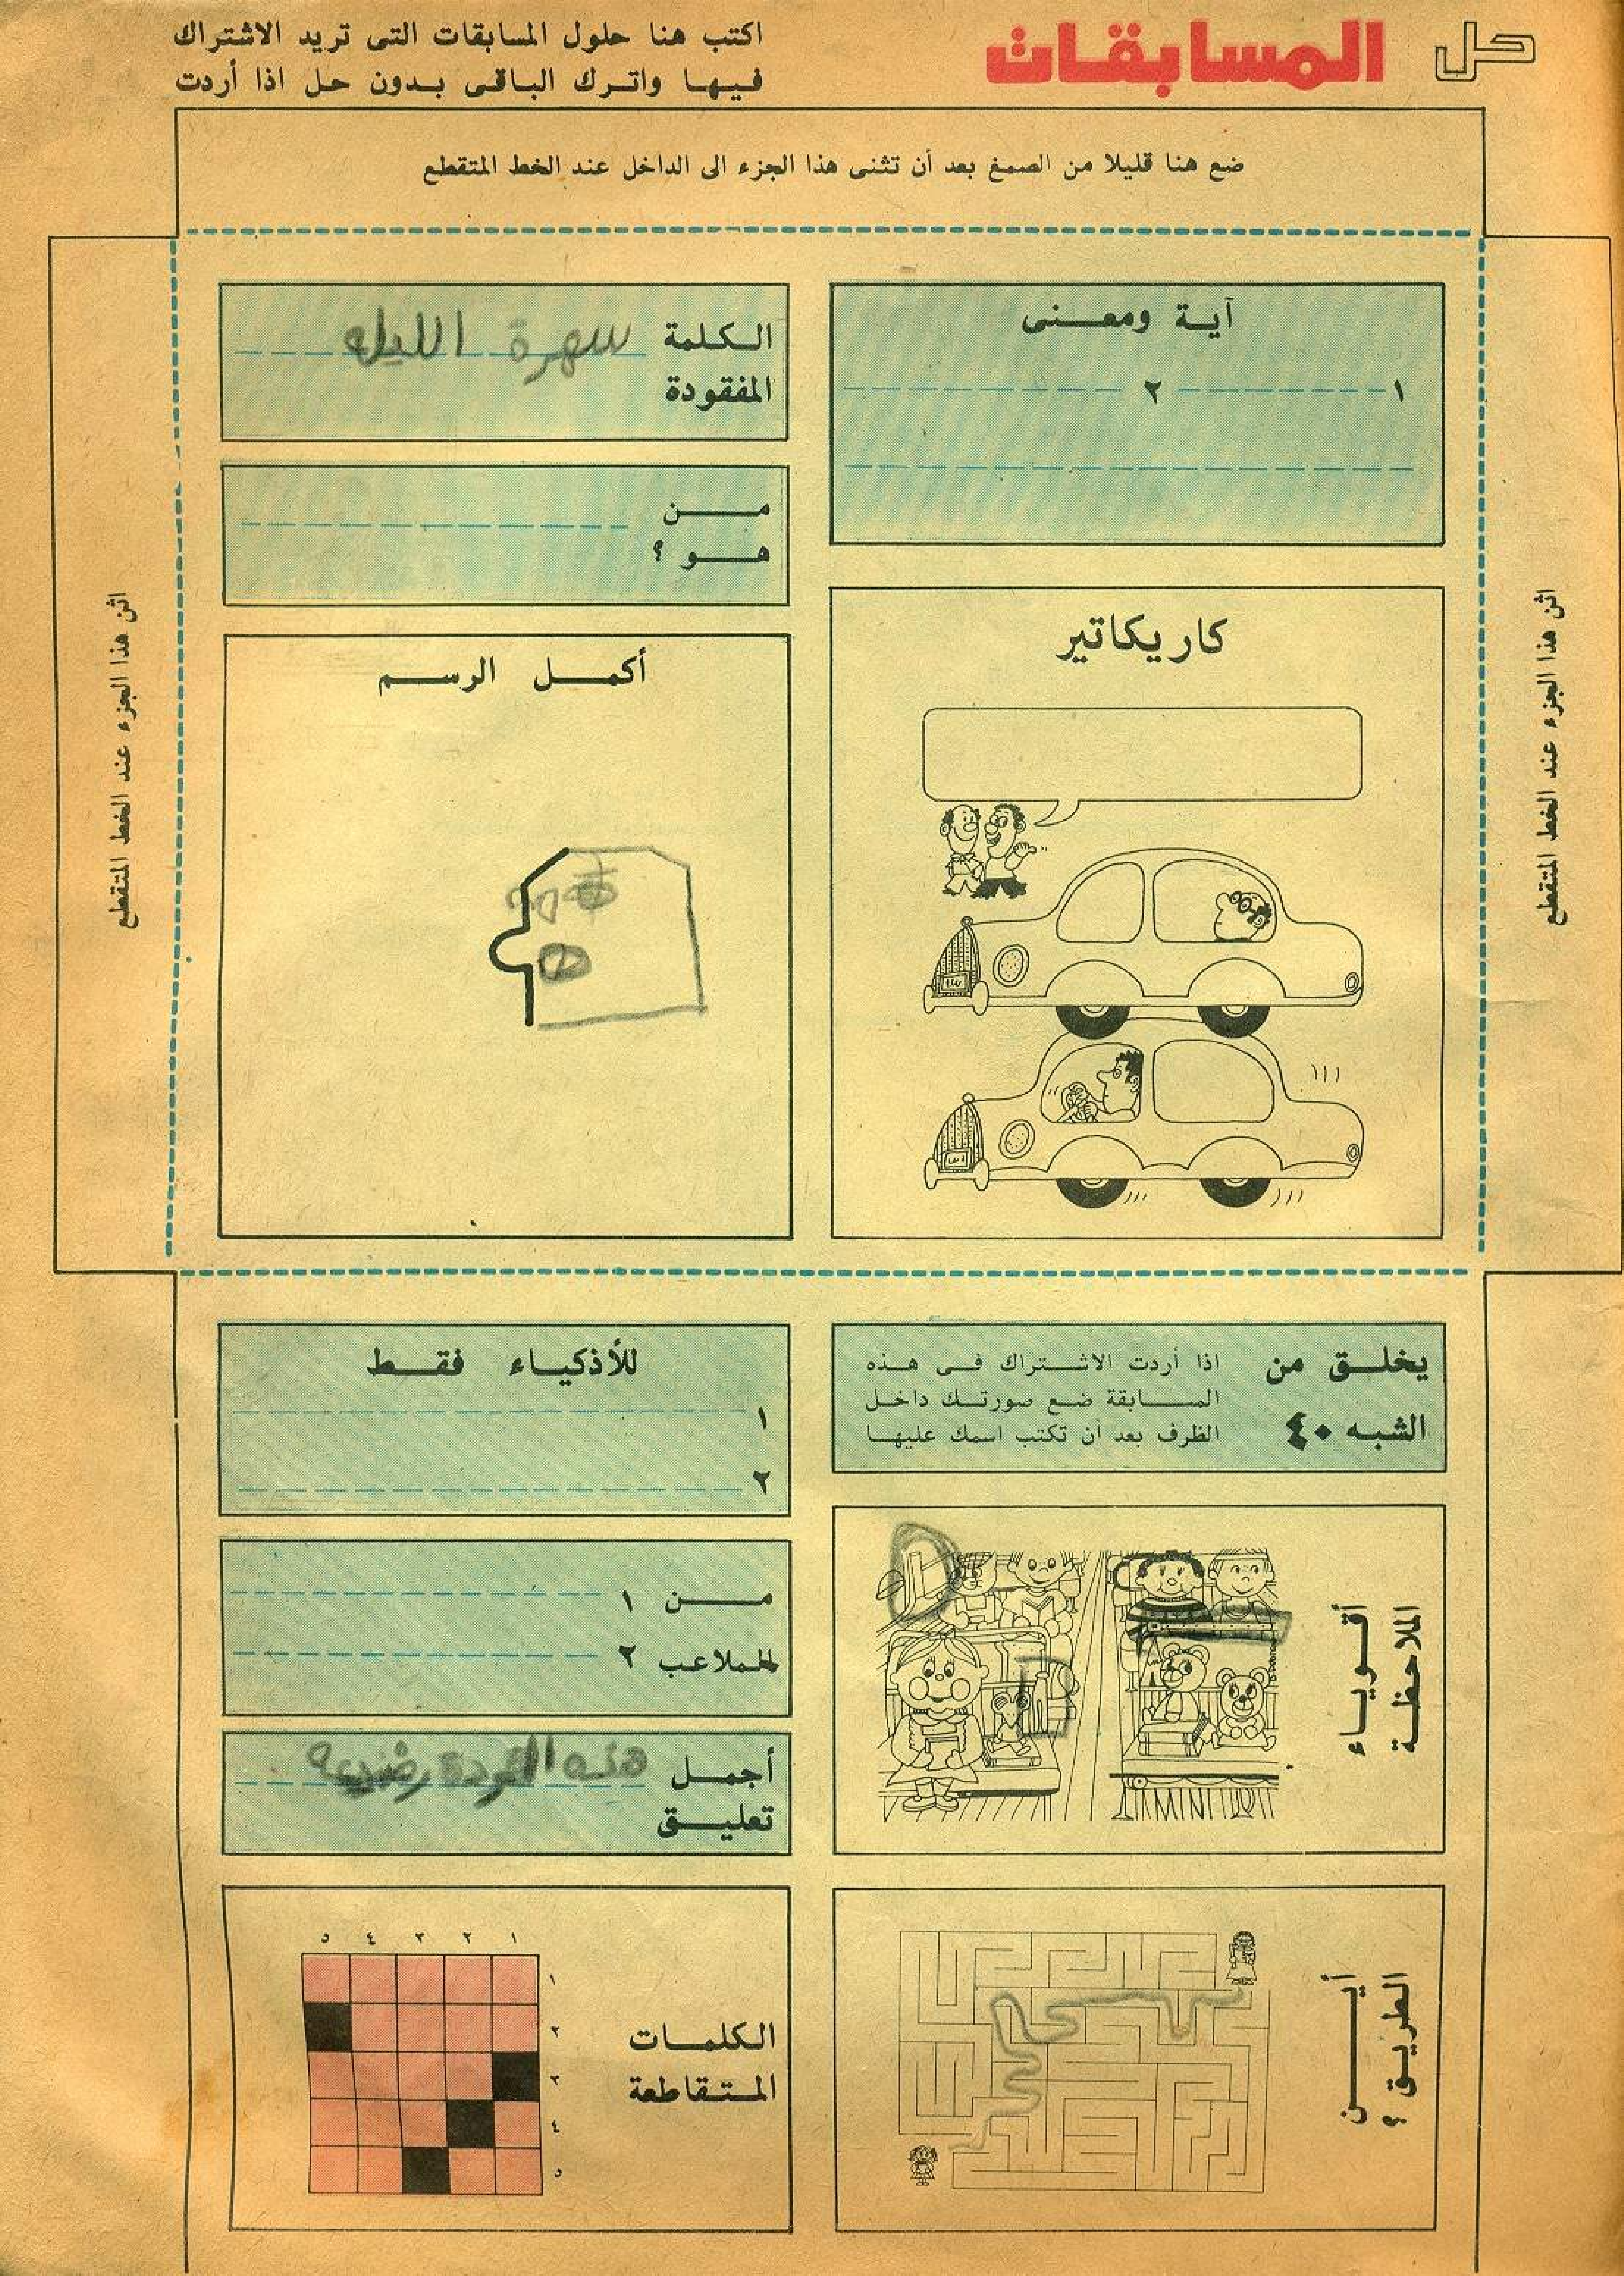 حل المسابقات
اكتب هنا حلول المسابقات التى تريد الاشتراك
فيها واترك الباقى بدون حل اذا أردت
ضع هنا قليلا من الصمغ بعد أن تثنى هذا الجزء الى الداخل عند الخط المتقطع
اثن هذا الجزء عند الخط المتقطع
آية ومعنى
١ ٢
الكلمة سهرة الليله
المفقودة
من
هو ؟
كاريكاتير
أكمل الرسم
اثن هذا الجزء عند الخط المتقطع
يخلق من
الشبه ٤٠
اذا أردت الاشتراك فى هذه
المسابقة ضع صورتك داخل
الظرف بعد أن تكتب اسمك عليها
للأذكياء فقط
١
٢
أقوياء
الملاحظة
MINI
من ١
الملاعب ٢
أجمل هذه
تعليق
أين
الطريق ؟
الكلمات
المتقاطعة
١ ٢ ٣ ٤ ٥
١
٢
٣
٤
٥